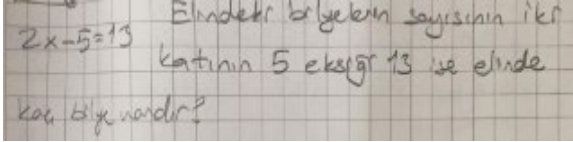 2x-5=13
Elindeki bilyelerin sayısının iki
katının 5 eksiği 13 ise elinde
kaç bilye vardır?